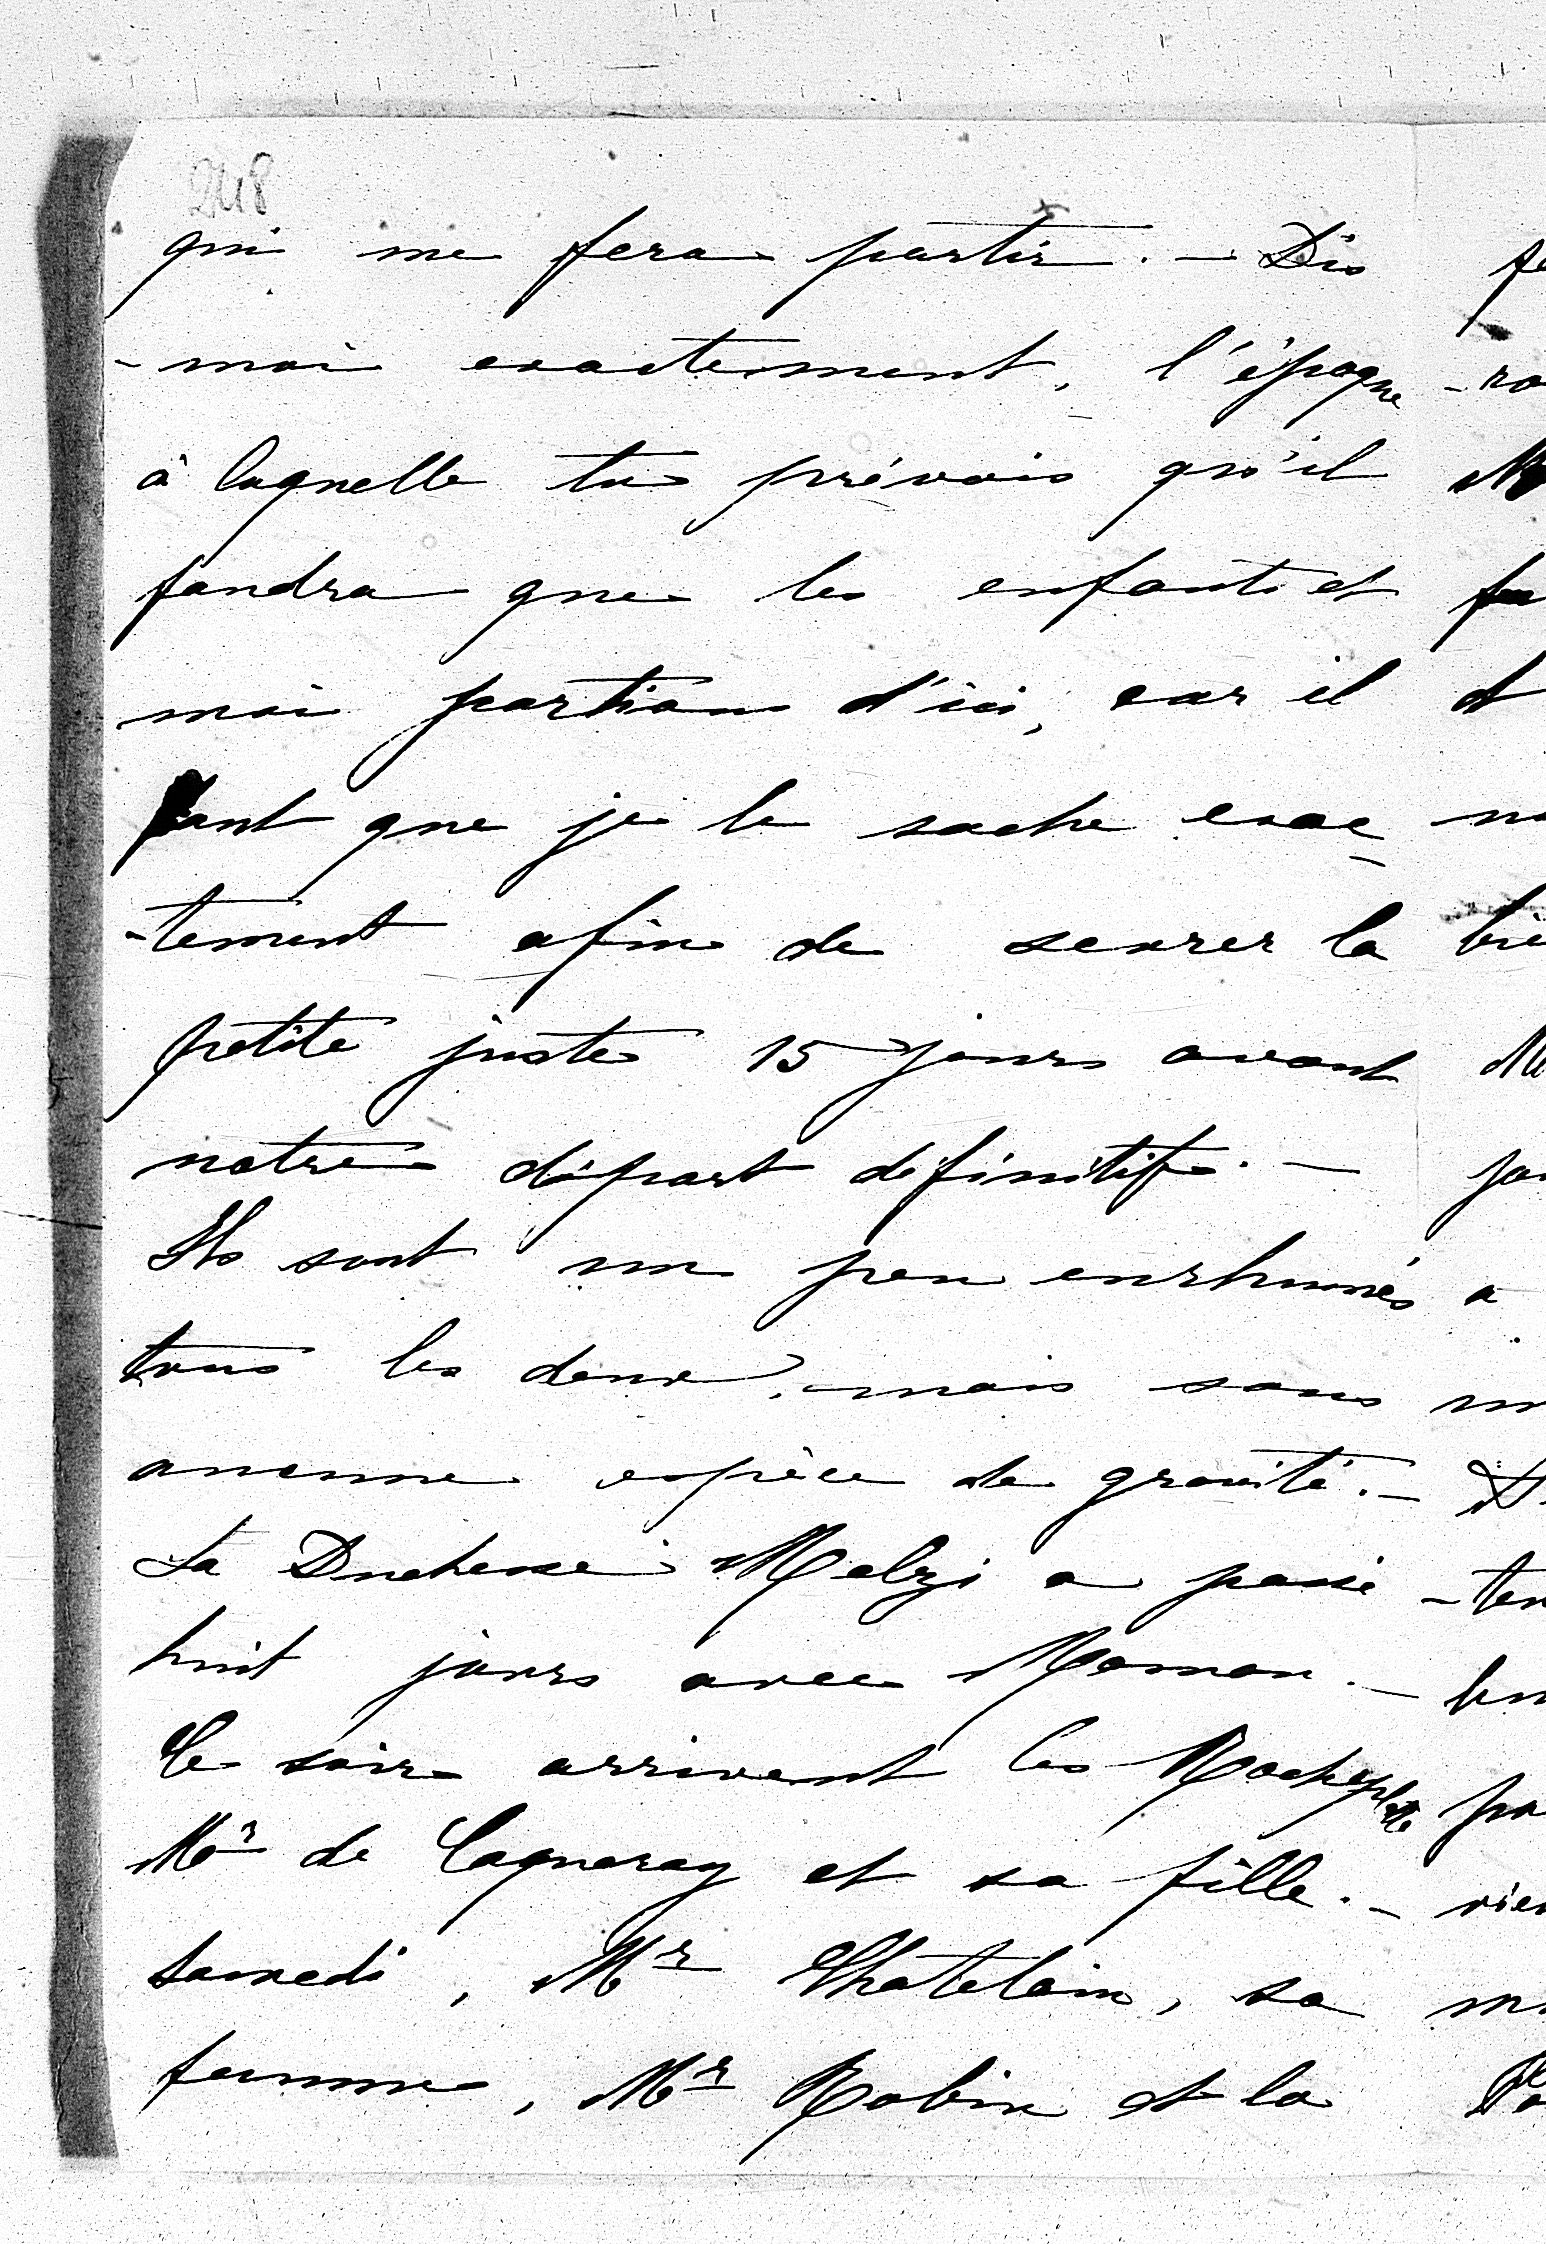 248
qui me fera partir. - Dis
-moi exactement, l'époque
à laquelle tu prévois qu'il
faudra que les enfants et
moi partions d'ici, car il
faut que je le sache exac
-tement afin de sevrer la
petite juste 15 jours avant
notre départ définitif. -
Ils sont un peu enrhumés
tous les deux, mais sans
aucune espèce de gravité. -
La Duchesse Melzi a passé
huit jours avec Maman. -
Ce soir arrivent les Rocheplatte
Mr de Cagneray et sa fille. -
samedi, Mr Chatelain, sa
femme, Mr Robin et la